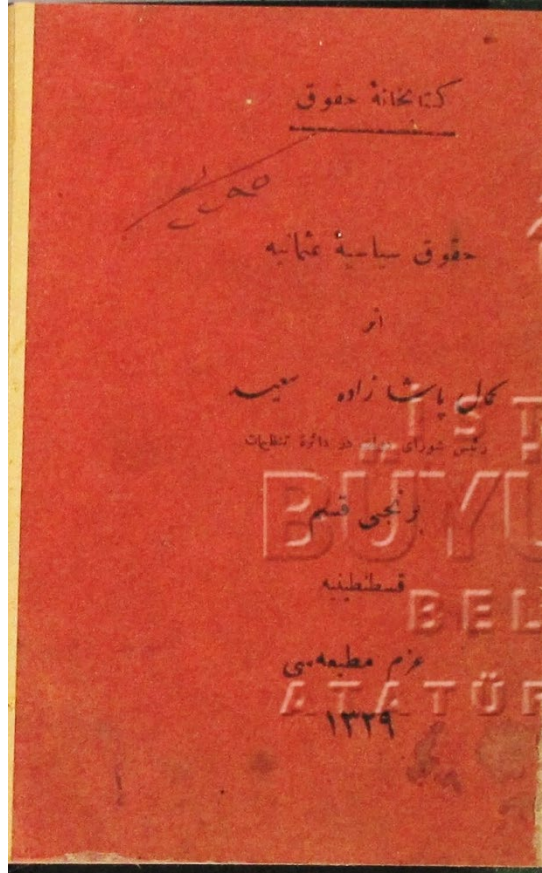 كتابخانهٔ حقوق
حقوق سياسيهٔ عثمانيه
اثر
كمال پاشا زاده سعيد
رئيس شوراى دولت در دائرهٔ تنظيمات
برنجى قسم
قسطنطينيه
عزم مطبعه‌سى
١٣٢٩
İST
BÜYÜ
BEL
ATATÜR